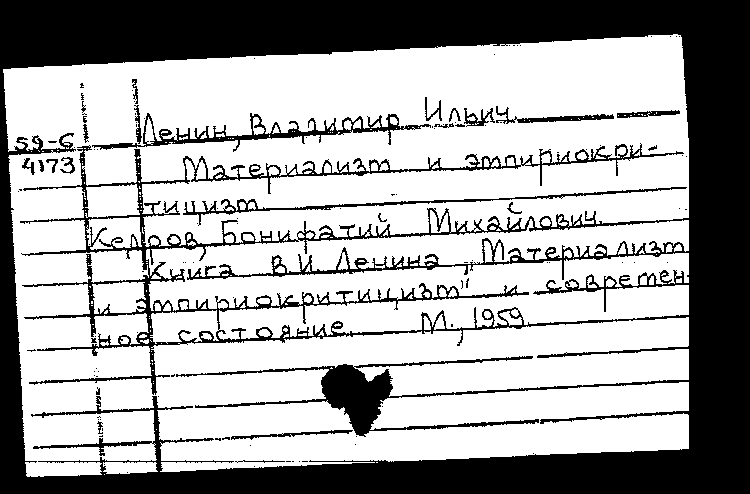 Ленин, Владимир Ильич.
59-6
4173
Материализм и эмпириокри-
тицизм
Кедров, Бонифатий Михайлович.
Книга В.И. Ленина „Материализм
и эмпириокритицизм" и современ-
ное состояние. М., 1959